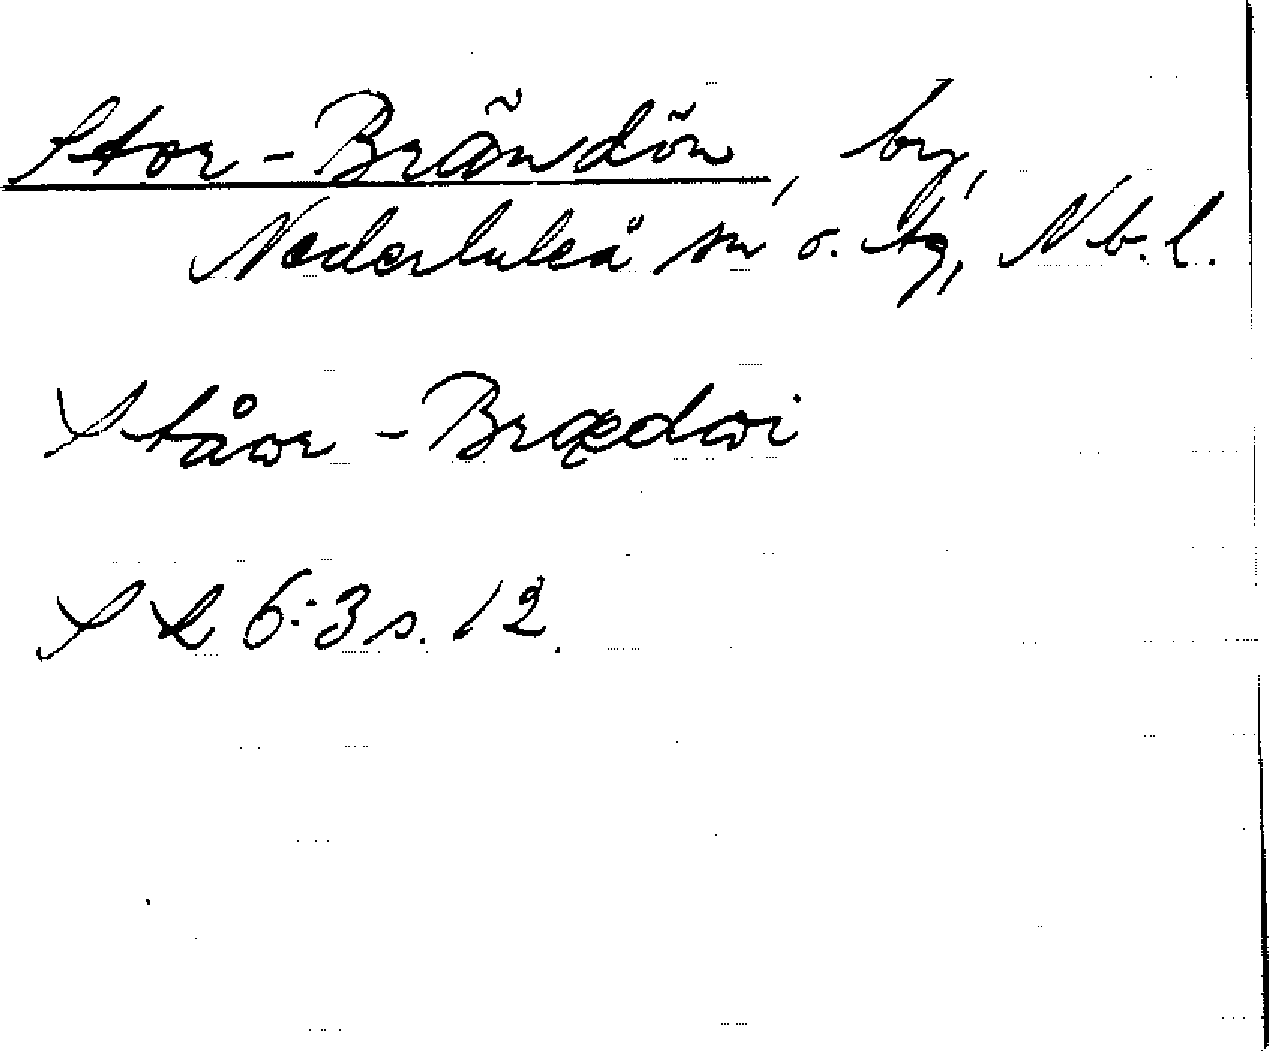 Stor-Brändön, by,
Nederluleå sn o. tg, Nb. l.
Ståor - Bræ̨dωi
SL 6:3 s. 12.